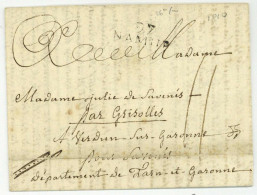 97
NAMUR
Madame
Madame julie de Savenés
par Grisolles
A Verdun Sur Garonne
pour Savenés
Département de Tarn-et-Garonne